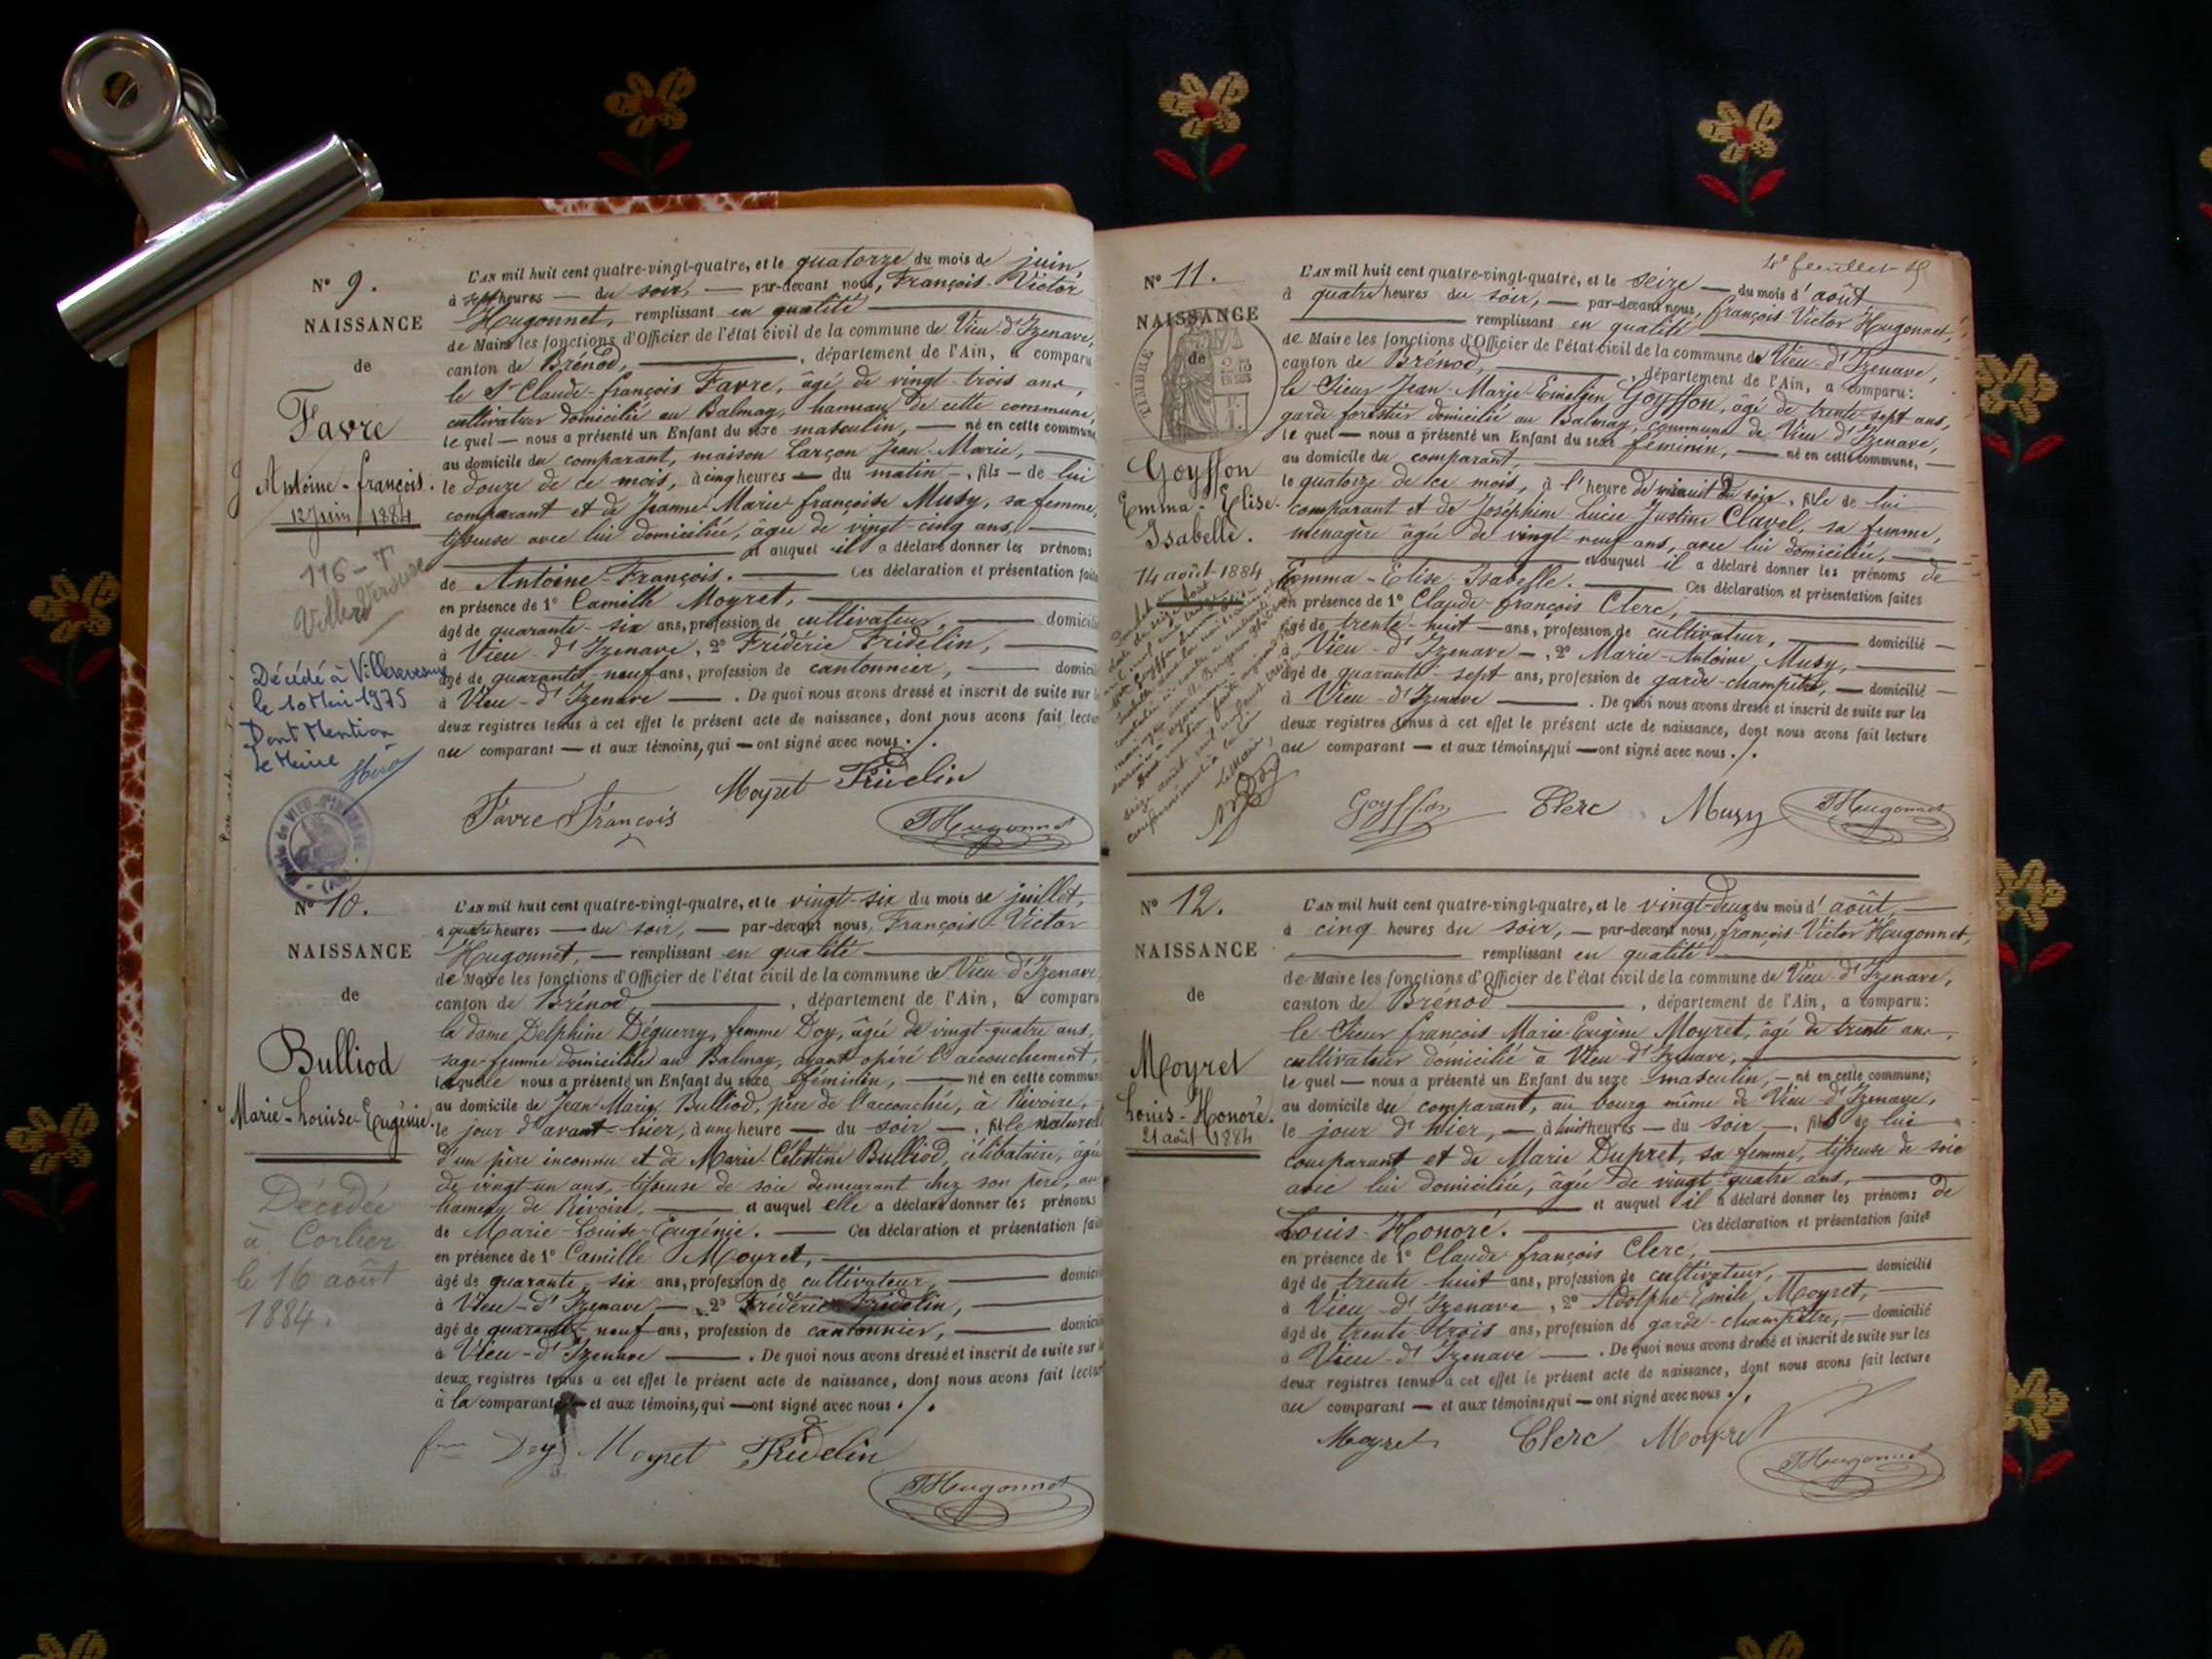 N° 9.
NAISSANCE
de
Favre
Antoine-François.
12 Juin 1884
116-T
Villereversure
Décédé à Villereversure
le 10 Mai 1975
Dont Mention
le Maire
L'AN mil huit cent quatre-vingt-quatre, et le quatorze du mois de juin,
à sept heures — du soir, — par-devant nous, François-Victor
Hugonnet, remplissant en qualité
de Maire les fonctions d'Officier de l'état civil de la commune de Vieu-d'Izenave,
canton de Brénod, département de l'Ain, a comparu
le Sr Claude-François Favre, âgé de vingt-trois ans,
cultivateur domicilié au Balmay, hameau de cette commune,
lequel — nous a présenté un Enfant du sexe masculin, — né en cette commune,
au domicile du comparant, maison Larçon Jean-Marie,
le douze de ce mois, à cinq heures — du matin —, fils — de lui
comparant et de Jeanne-Marie-Françoise Musy, sa femme,
tisseuse avec lui domiciliée, âgée de vingt-cinq ans,
et auquel il a déclaré donner les prénoms
de Antoine-François. — Ces déclaration et présentation faites
en présence de 1° Camille Moyret,
âgé de quarante-six ans, profession de cultivateur, — domicilié
à Vieu-d'Izenave, 2° Frédéric Fridelin,
âgé de quarante-neuf ans, profession de cantonnier, — domicilié
à Vieu-d'Izenave — . De quoi nous avons dressé et inscrit de suite sur les
deux registres tenus à cet effet le présent acte de naissance, dont nous avons fait lecture
au comparant — et aux témoins, qui — ont signé avec nous ./.
Favre François Moyret Fridelin
FHugonnet
N° 10.
NAISSANCE
de
Bulliod
Marie-Louise-Eugénie.
Décédée
à Corlier
le 16 août
1884.
L'AN mil huit cent quatre-vingt-quatre, et le vingt-six du mois de juillet,
à quatre heures — du soir, — par-devant nous, François Victor
Hugonnet, — remplissant en qualité
de Maire les fonctions d'Officier de l'état civil de la commune de Vieu-d'Izenave,
canton de Brénod, département de l'Ain, a comparu
la dame Delphine Déguerry, femme Doy, âgée de vingt-quatre ans,
sage-femme domiciliée au Balmay, ayant opéré l'accouchement,
laquelle nous a présenté un Enfant du sexe féminin, — né en cette commune
au domicile de Jean-Marie Bulliod, père de l'accouchée, à Rivoire,
le jour d'avant-hier, à une heure — du soir —, fille naturelle
d'un père inconnu et de Marie-Célestine Bulliod, célibataire, âgée
de vingt-un ans, tisseuse de soie demeurant chez son père, au
hameau de Rivoire, — et auquel elle a déclaré donner les prénoms
de Marie-Louise-Eugénie. — Ces déclaration et présentation faites
en présence de 1° Camille Moyret,
âgé de quarante-six ans, profession de cultivateur, — domicilié
à Vieu-d'Izenave —, 2° Frédéric Fridelin,
âgé de quarante-neuf ans, profession de cantonnier, — domicilié
à Vieu-d'Izenave — . De quoi nous avons dressé et inscrit de suite sur les
deux registres tenus à cet effet le présent acte de naissance, dont nous avons fait lecture
à la comparante — et aux témoins, qui — ont signé avec nous ./.
Doy Moyret Fridelin
FHugonnet
4e feuillet
N° 11.
NAISSANCE
de
Goyffon
Emma-Elise-
Isabelle.
14 août 1884
L'AN mil huit cent quatre-vingt-quatre, et le seize — du mois d'août
à quatre heures du soir, — par-devant nous, François Victor Hugonnet,
remplissant en qualité
de Maire les fonctions d'Officier de l'état civil de la commune de Vieu-d'Izenave,
canton de Brénod, département de l'Ain, a comparu:
le Sieur Jean-Marie Goyffon, âgé de trente-sept ans,
garde-forestier domicilié au Balmay, commune de Vieu-d'Izenave,
lequel — nous a présenté un Enfant du sexe féminin, — né en cette commune, —
au domicile du comparant,
le quatorze de ce mois, à l'heure de minuit du soir, fille de lui
comparant et de Joséphine Lucie Justine Clavel, sa femme,
ménagère âgée de vingt-neuf ans, avec lui domiciliée,
et auquel il a déclaré donner les prénoms de
Emma-Elise-Isabelle. — Ces déclaration et présentation faites
en présence de 1° Claude-François Clerc,
âgé de trente-huit — ans, profession de cultivateur, — domicilié —
à Vieu-d'Izenave —, 2° Marie-Antoine Musy,
âgé de quarante-sept ans, profession de garde-champêtre, — domicilié —
à Vieu-d'Izenave — . De quoi nous avons dressé et inscrit de suite sur les
deux registres tenus à cet effet le présent acte de naissance, dont nous avons fait lecture
au comparant — et aux témoins, qui — ont signé avec nous ./.
Goyffon Clerc Musy FHugonnet
N° 12.
NAISSANCE
de
Moyret
Louis-Honoré.
21 août 1884
L'AN mil huit cent quatre-vingt-quatre, et le vingt-deux du mois d'août,
à cinq heures du soir, — par-devant nous, François-Victor Hugonnet,
remplissant en qualité
de Maire les fonctions d'Officier de l'état civil de la commune de Vieu-d'Izenave,
canton de Brénod, département de l'Ain, a comparu:
le Sieur François-Marie-Eugène Moyret, âgé de trente ans,
cultivateur domicilié à Vieu d'Izenave,
lequel — nous a présenté un Enfant du sexe masculin, — né en cette commune;
au domicile du comparant, au bourg même de Vieu-d'Izenave,
le jour d'hier, — à huit heures — du soir —, fils de lui
comparant et de Marie Dupret, sa femme, tisseuse de soie
avec lui domiciliée, âgée de vingt-quatre ans,
et auquel il a déclaré donner les prénoms de
Louis-Honoré. — Ces déclaration et présentation faites
en présence de 1° Claude François Clerc,
âgé de trente-huit ans, profession de cultivateur, — domicilié
à Vieu d'Izenave, 2° Adolphe Emile Moyret,
âgé de trente-trois ans, profession de garde-champêtre, — domicilié
à Vieu-d'Izenave — . De quoi nous avons dressé et inscrit de suite sur les
deux registres tenus à cet effet le présent acte de naissance, dont nous avons fait lecture
au comparant — et aux témoins, qui — ont signé avec nous ./.
Moyret Clerc Moyret
FHugonnet